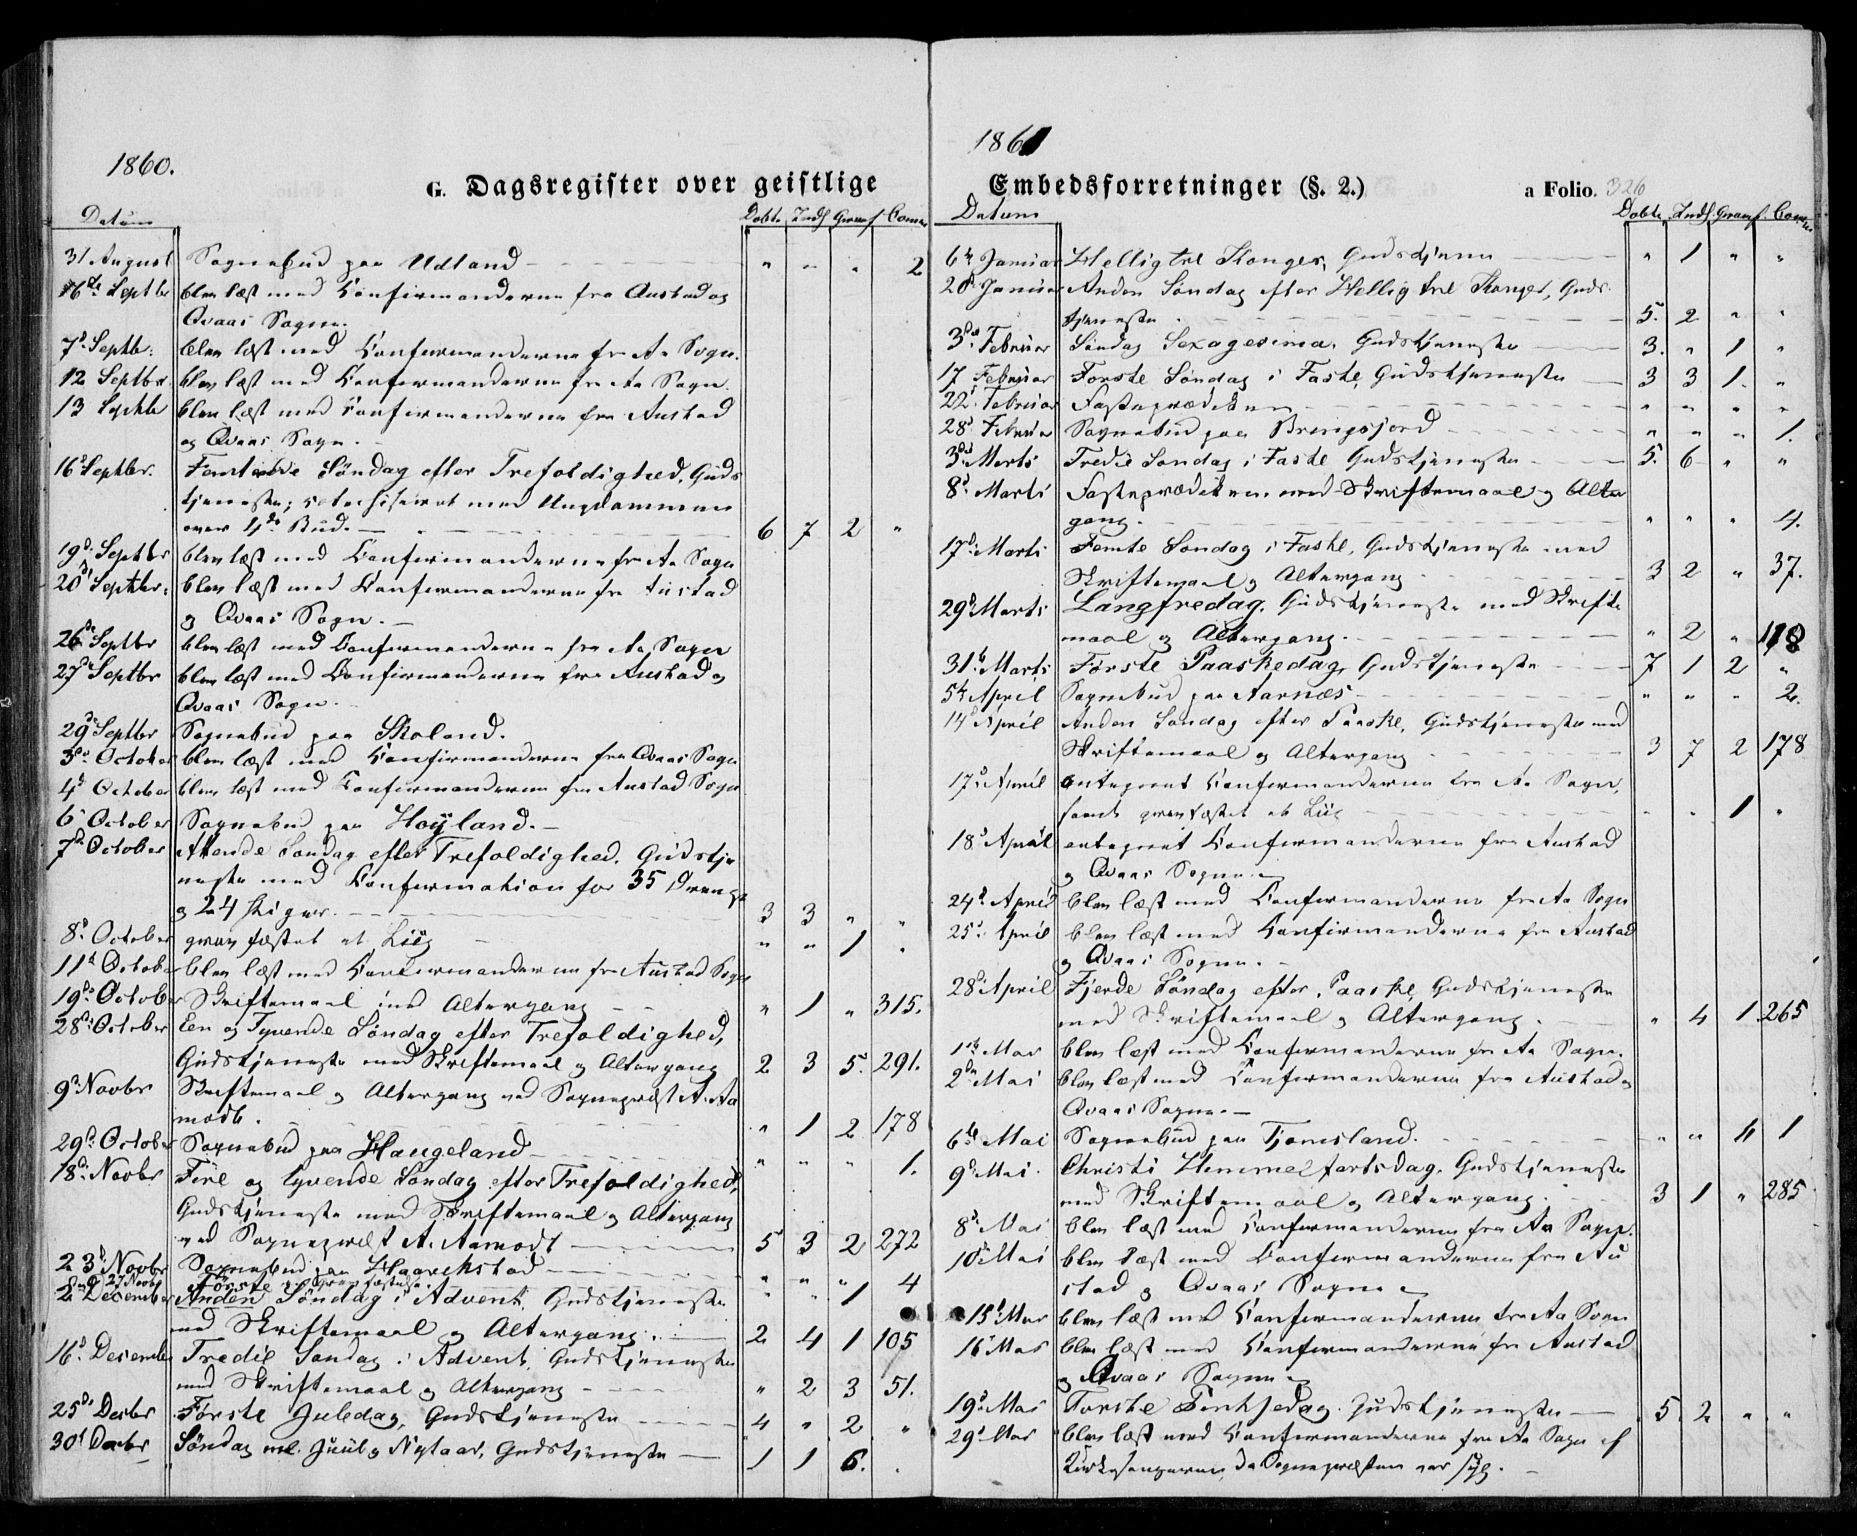 1860.
G. Dagsregister over geistlige
Datum Døbte Indl. Gravf. Comm
31 August Sognebud paa Udland " " " 2
6te Septbr blev læst med Confirmanderne fra Austad og
Qvaas Sogne.
7de Septb: blev læst med Confirmanderne fra Aa Sogn.
12 Septbr. blev læst med Confirmanderne fra Aa Sogn.
13 Septb blev læst med Confirmanderne fra Austad
og Qvaas Sogn.
16d Septbr. Søndag efter Trefoldighed, Guds
tjeneste; catechiseret med Ungdommen
over 4de Bud. 6 7 2 "
19d. Septbr blev læst med Confirmanderne fra Aa Sogn
20d Septbr: blev læst med Confirmanderne fra Austad
og Qvaas Sogn.
26de Septbr blev læst med Confirmanderne fra Aa Sogn
27de Septbr blev læst med Confirmanderne fra Austad og
Qvaas Sogn.
29de Septbr Sognebud paa Skoland.
3die October blev læst med Confirmanderne fra Qvaas Sogn
4d October blev læst med Confirmanderne fra Austad Sogn
6 October Sognebud paa Høyland.
7d October Attende Søndag efter Trefoldighed. Gudstje
neste med Confirmation for 35 Drenge
og 24 Piger. 3 3 " "
8d. October gravfæstet et Liig " " 1 "
11d October blev læst med Confirmanderne fra Austad Sogn
19de October Skriftemaal med Altergang " 1 " 315.
28d: October Een og Tyvende Søndag efter Trefoldighed,
Gudstjeneste med Skriftemaal og Altergang 2 3 5. 291.
9d Novbr Skriftemaal og Altergang ved Sognepræst A. Aa
modt. " 1 2 178
29d. October Sognebud paa Haugeland " " " 1.
18d. Novbr Fire og tyvende Søndag efter Trefoldighed,
Gudstjeneste med Skriftemaal og Altergang
ved Sognepræst A. Aamodt 5 3 2 272
23d Novbr Sognebud paa Haarikstad " " " 4
27 Novbr Gravfæstelse " " 1
2 December Første Anden Søndag i Advent, Gudstjeneste
med Skriftemaal og Altergang. 2 4 1 105
16d December Tredie Søndag i Advent, Gudstjeneste
med Skriftemaal og Altergang " 2 3 51.
25d. Decbr Første Juledag, Gudstjeneste 4 " 2 "
30d Decbr Søndag ml. Juul og Nytaar, Gudstjeneste 1 1 6. .
1861
Embedsforretninger (§. 2.) a Folio. 326
Datum Døbte Indl. Gravf. Comm
6te Januar Hellig tre Konger, Gudstjeneste " 1 " "
20d Januar Anden Søndag efter Hellig tre Konger, Guds
tjeneste. 5. 2 " "
3die Februar Søndag Sexagesima, Gudstjeneste 3. " 1 "
17 Februar Første Søndag i Faste, Gudstjeneste 3 3 1. "
22d Februar Fasteprædiken " " " "
28d Februar Sognebud paa Bringsjord " " " 1.
3die Marts Tredie Søndag i Faste Gudstjeneste 5. 6 " "
8d. Marts Fasteprædiken med Skriftemaal og Alter
gang. " " " 4.
17d. Marts Femte Søndag i Faste, Gudstjeneste med
Skriftemaal og Altergang 3 2 " 37.
29d Marts Langfredag, Gudstjeneste med Skrifte
maal og Altergang. " 2 " 118
31te Marts Første Paaskedag, Gudstjeneste 7 1 2 "
5te April Sognebud paa Aarnæs " " " 2.
14d April Anden Søndag efter Paaske, Gudstjeneste med
Skriftemaal og Altergang 3 7 2 178
17d April antegnet Confirmanderne fra Aa Sogn,
samt gravfæstet et Liig . . 1 "
18d April antegnet Confirmanderne fra Austad
og Qvaas Sogne.
24d April blev læst med Confirmanderne fra Aa Sogn
25d. April blev læst med Confirmanderne fra Austad
og Qvaas Sogne.
28d April Fjerde Søndag efter Paaske, Gudstjeneste
med Skriftemaal og Altergang. " 4 1 265
1te Mai blev læst med Confirmanderne fra Aa Sogn.
2den Mai blev læst med Confirmanderne fra Austad og
Qvaas Sogne.
6te Mai Sognebud paa Tjomsland. " " " 1
9d Mai. Christi Himmelfartsdag, Gudstjeneste
med Skriftemaal og Altergang. 3 1 " 285
8d Mai blev læst med Confirmanderne fra Aa Sogn.
10d Mai blev læst med Confirmanderne fra Au
stad og Qvaas Sogne
15d Mai blev læst med Confirmanderne fra Aa Sogn
16d Mai blev læst med Confirmanderne fra Austad
og Qvaas Sogne
19d Mai Første Pintsedag. Gudstjeneste 5 2 " "
29d Mai blev læst med Confirmanderne fra Aa Sogn af
Kirkesangeren, da Sognepræsten var syg.